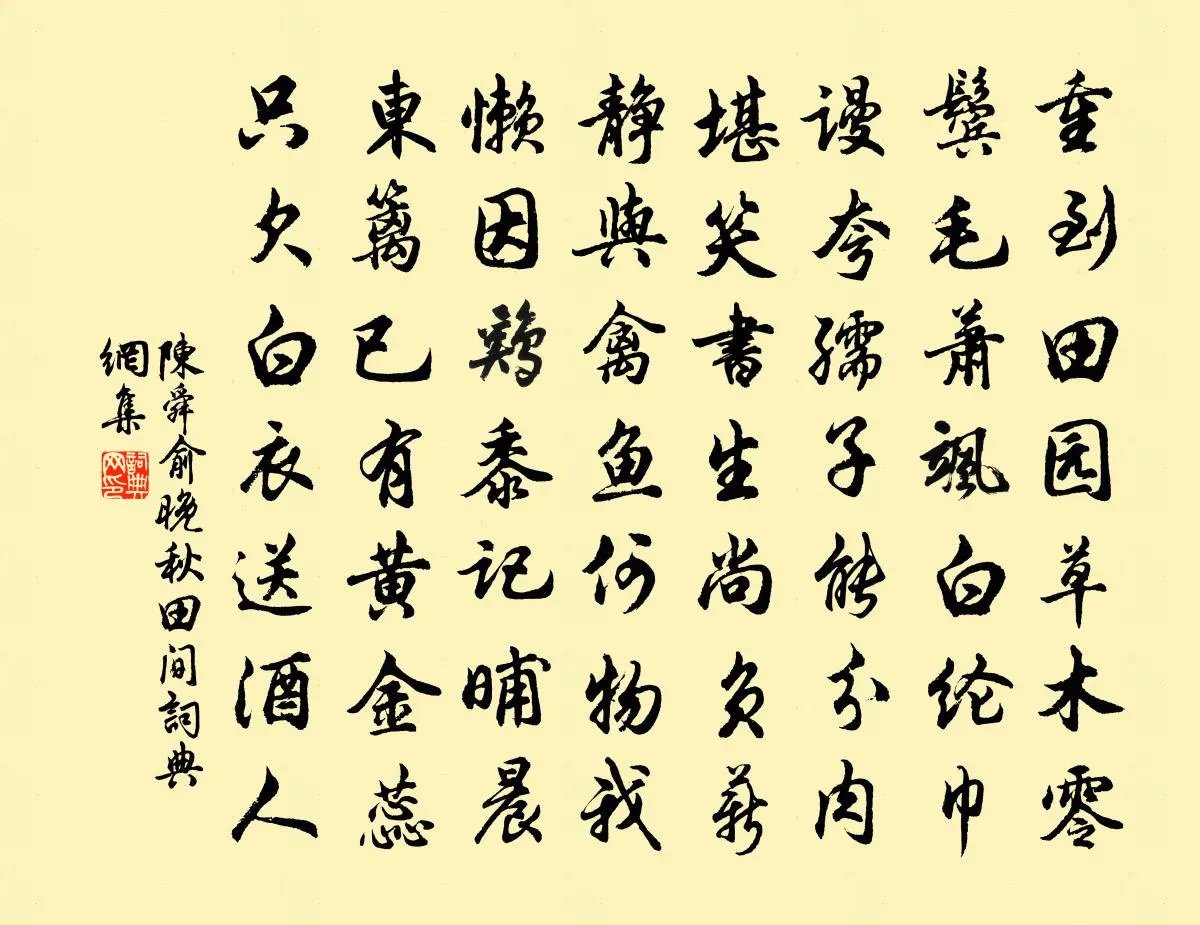 重到田园草木零
鬓毛萧飒白纶巾
谩夸孺子能分肉
堪笑書生尚负薪
静與禽鱼何物我
懒因鸡黍记晡晨
東篱已有黄金蕊
只欠白衣送酒人
陳舜俞晚秋田间詞典
網集
詞典
网印